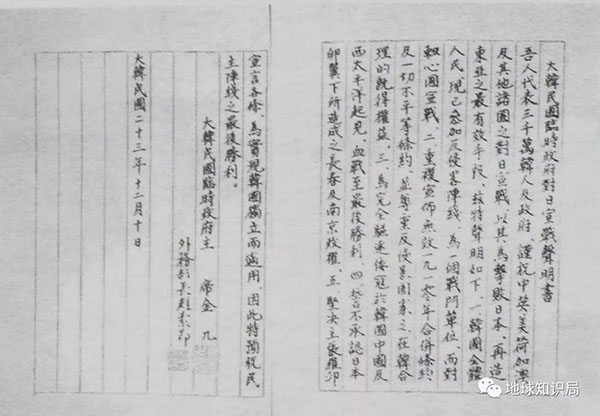 大韓民國臨時政府對日宣戰聲明書
吾人代表三千萬韓人及政府、謹祝中英美荷加奧
及其他諸國之對日宣戰、以其為擊敗日本、再造
東亞之最有效手段、茲特聲明如下、一、韓國全體
人民、現已參加反侵畧陣綫、為一個戰鬥單位、而對
軸心國宣戰、二、重複宣佈無效一九一〇年合併條約
及一切不平等條約、並尊重反侵畧國家之在韓合
理的既得權益、三、為完全驅逐倭寇於韓國中國及
西太平洋起見、血戰至最後勝利、四、誓不承認日本
卵翼下所造成之長春及南京政權、五、堅決主張羅邱
宣言各條、為實現韓國獨立而適用、因此特預祝民
主陣綫之最後勝利。
大韓民國臨時政府主 席金 九
外務部長趙素卬
大韓民國二十三年十二月十日
地球知识局